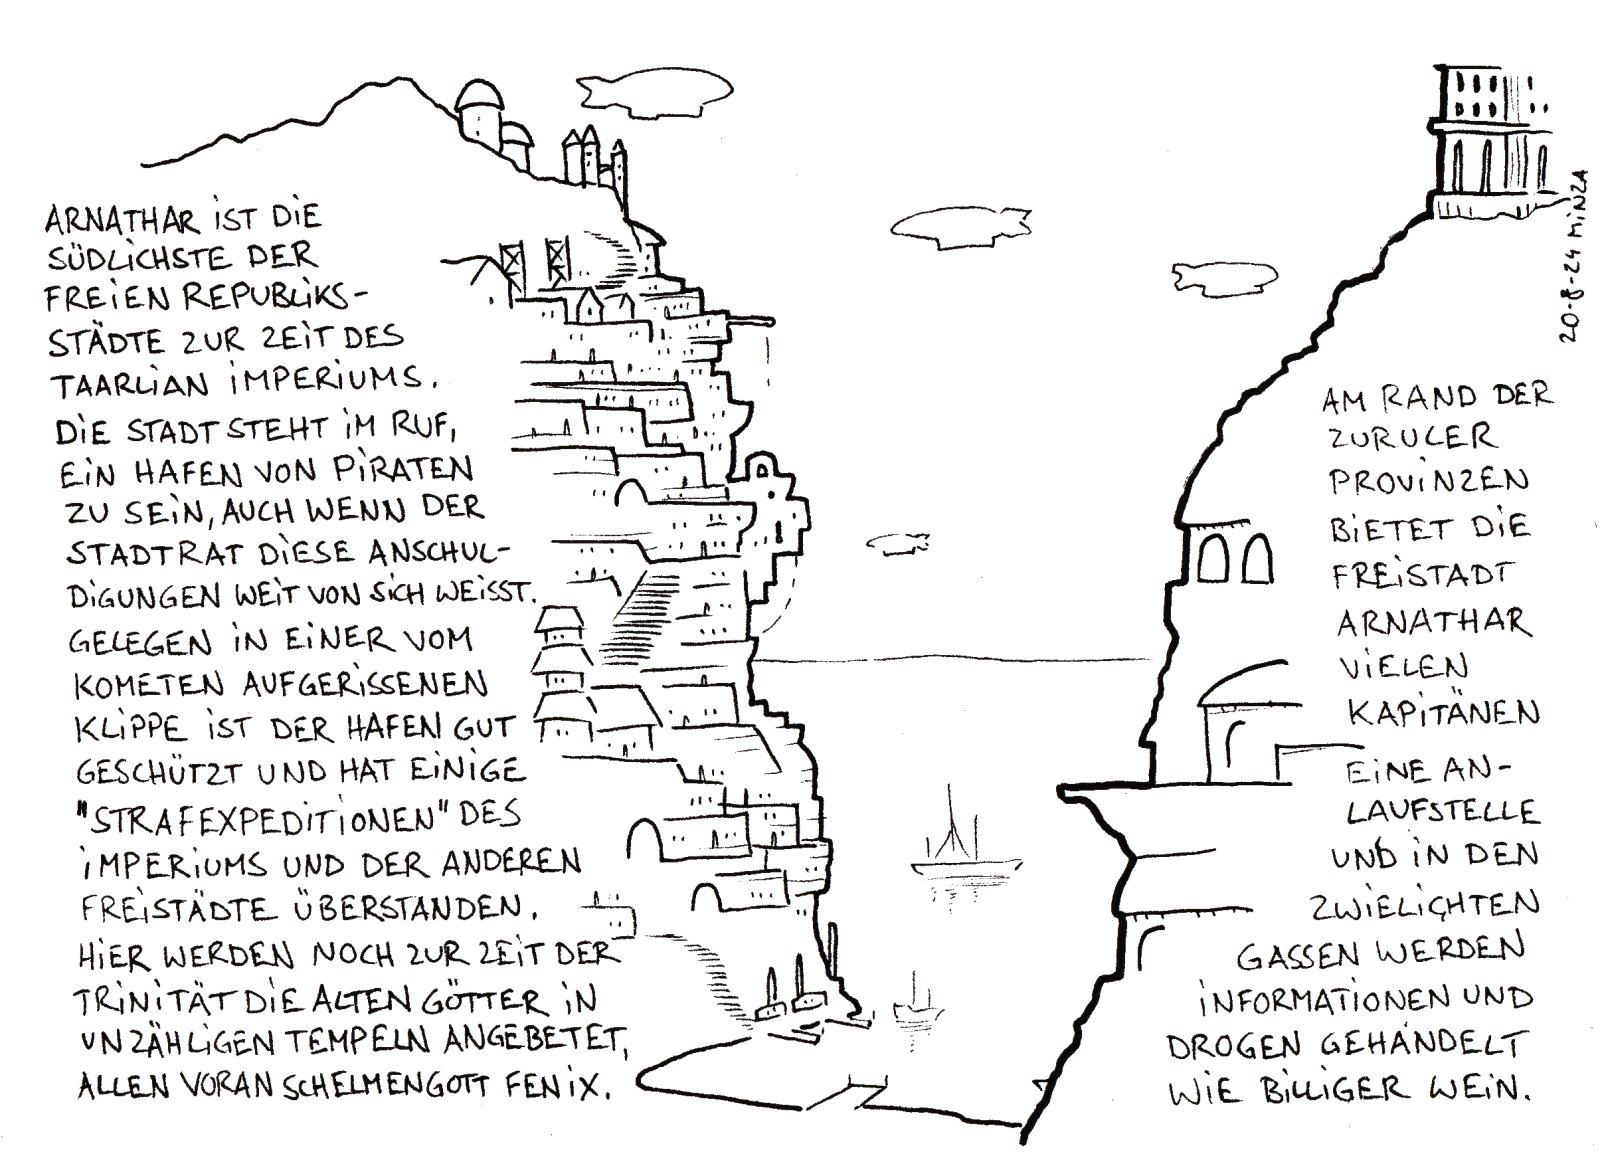 ARNATHAR IST DIE
SÜDLICHSTE DER
FREIEN REPUBLIKS-
STÄDTE ZUR ZEIT DES
TAARLIAN IMPERIUMS.
DIE STADT STEHT IM RUF,
EIN HAFEN VON PIRATEN
ZU SEIN, AUCH WENN DER
STADTRAT DIESE ANSCHUL-
DIGUNGEN WEIT VON SICH WEISST.
GELEGEN IN EINER VOM
KOMETEN AUFGERISSENEN
KLIPPE IST DER HAFEN GUT
GESCHÜTZT UND HAT EINIGE
"STRAFEXPEDITIONEN" DES
IMPERIUMS UND DER ANDEREN
FREISTÄDTE ÜBERSTANDEN.
HIER WERDEN NOCH ZUR ZEIT DER
TRINITÄT DIE ALTEN GÖTTER IN
UNZÄHLIGEN TEMPELN ANGEBETET,
ALLEN VORAN SCHELMENGOTT FENIX.
AM RAND DER
ZURULER
PROVINZEN
BIETET DIE
FREISTADT
ARNATHAR
VIELEN
KAPITÄNEN
EINE AN-
LAUFSTELLE
UND IN DEN
ZWIELICHTEN
GASSEN WERDEN
INFORMATIONEN UND
DROGEN GEHANDELT
WIE BILLIGER WEIN.
20-8-24 MINZA